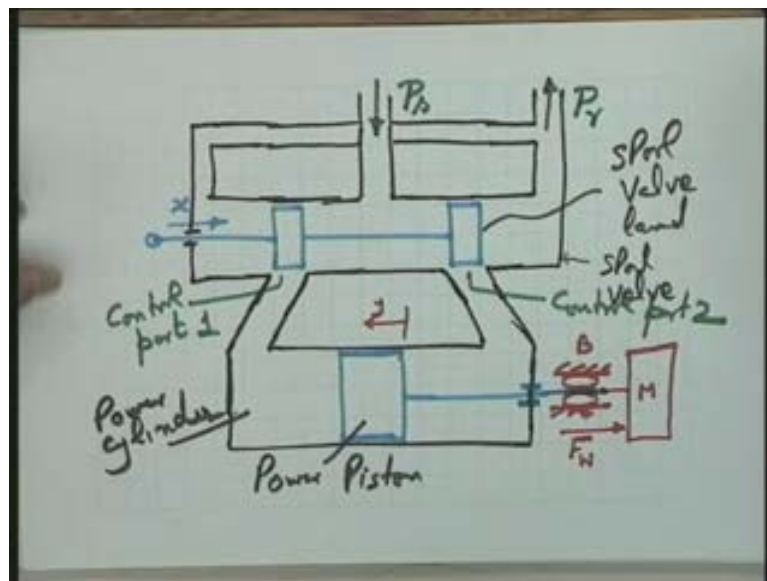 Ps
Pr
spool
valve
land
x
spool
valve
control
port 1
control
port 2
y
B
M
Fw
Power
cylinder
Power Piston